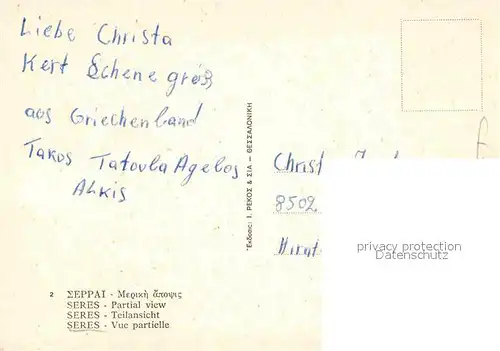 Liebe Christa
Kert Schene größ
aos Griechenland
Takos Tatovla Agelos
ALKIS
Christ
8502
Hirat
2 ΣΕΡΡΑΙ - Μερικὴ ἄποψις
SERES - Partial view
SERES - Teilansicht
SERES - Vue partielle
Ἔκδοσις: Ι. ΡΕΚΟΣ & ΣΙΑ — ΘΕΣΣΑΛΟΝΙΚΗ
privacy protection
Datenschutz